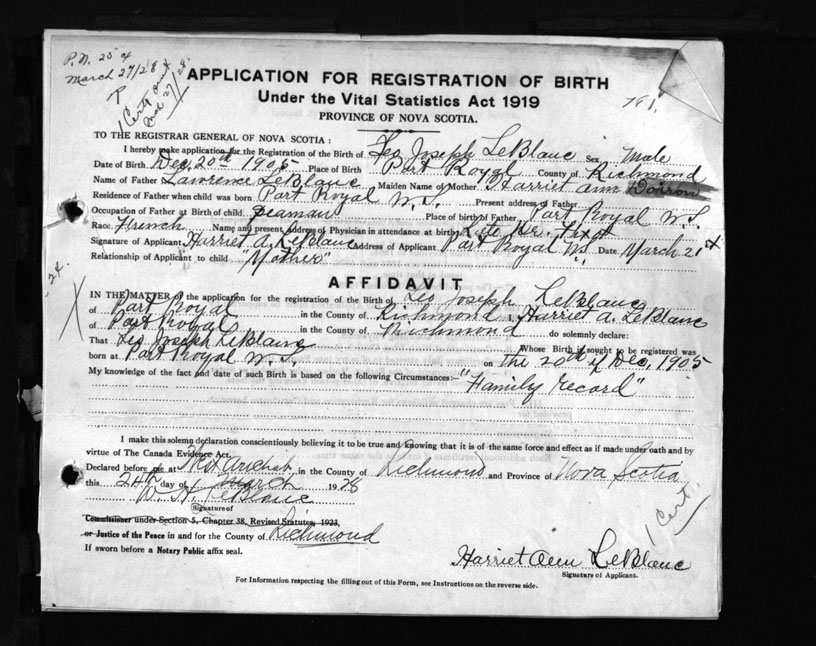 P.N. 25
March 27/28
1 Cert
APPLICATION FOR REGISTRATION OF BIRTH
Under the Vital Statistics Act 1919
PROVINCE OF NOVA SCOTIA.
TO THE REGISTRAR GENERAL OF NOVA SCOTIA :
I hereby make application for the Registration of the Birth of Leo Joseph LeBlanc Sex Male
Date of Birth Dec. 20th 1905 Place of Birth Port Royal County of Richmond
Name of Father Lawrence LeBlanc Maiden Name of Mother Harriet Ann
Residence of Father when child was born Port Royal N.S. Present address of Father
Occupation of Father at Birth of child Seaman Place of birth of Father Port Royal N.S.
Race French Name and present address of Physician in attendance at birth Late Dr.
Signature of Applicant Harriet A. LeBlanc Address of Applicant Port Royal NS Date March 21st
Relationship of Applicant to child "Mother"
AFFIDAVIT
IN THE MATTER of the application for the registration of the Birth of Leo Joseph LeBlanc
of Port Royal in the County of Richmond I, Harriet A. LeBlanc
of Port Royal in the County of Richmond do solemnly declare:
That Leo Joseph LeBlanc Whose Birth is sought to be registered was
born at Port Royal N.S. on the 20th of Dec, 1905
My knowledge of the fact and date of such Birth is based on the following Circumstances:— "Family record"
I make this solemn declaration conscientiously believing it to be true and knowing that it is of the same force and effect as if made under oath and by
virtue of The Canada Evidence Act.
Declared before me at West Arichat in the County of Richmond and Province of Nova Scotia
this 24th day of March 1928
W. H. LeBlanc
Signature of
Commissioner under Section 5, Chapter 38, Revised Statutes, 1923,
or Justice of the Peace in and for the County of Richmond
If sworn before a Notary Public affix seal.
1 Cert.
Harriet Ann LeBlanc
Signature of Applicant.
For Information respecting the filling out of this Form, see Instructions on the reverse side.